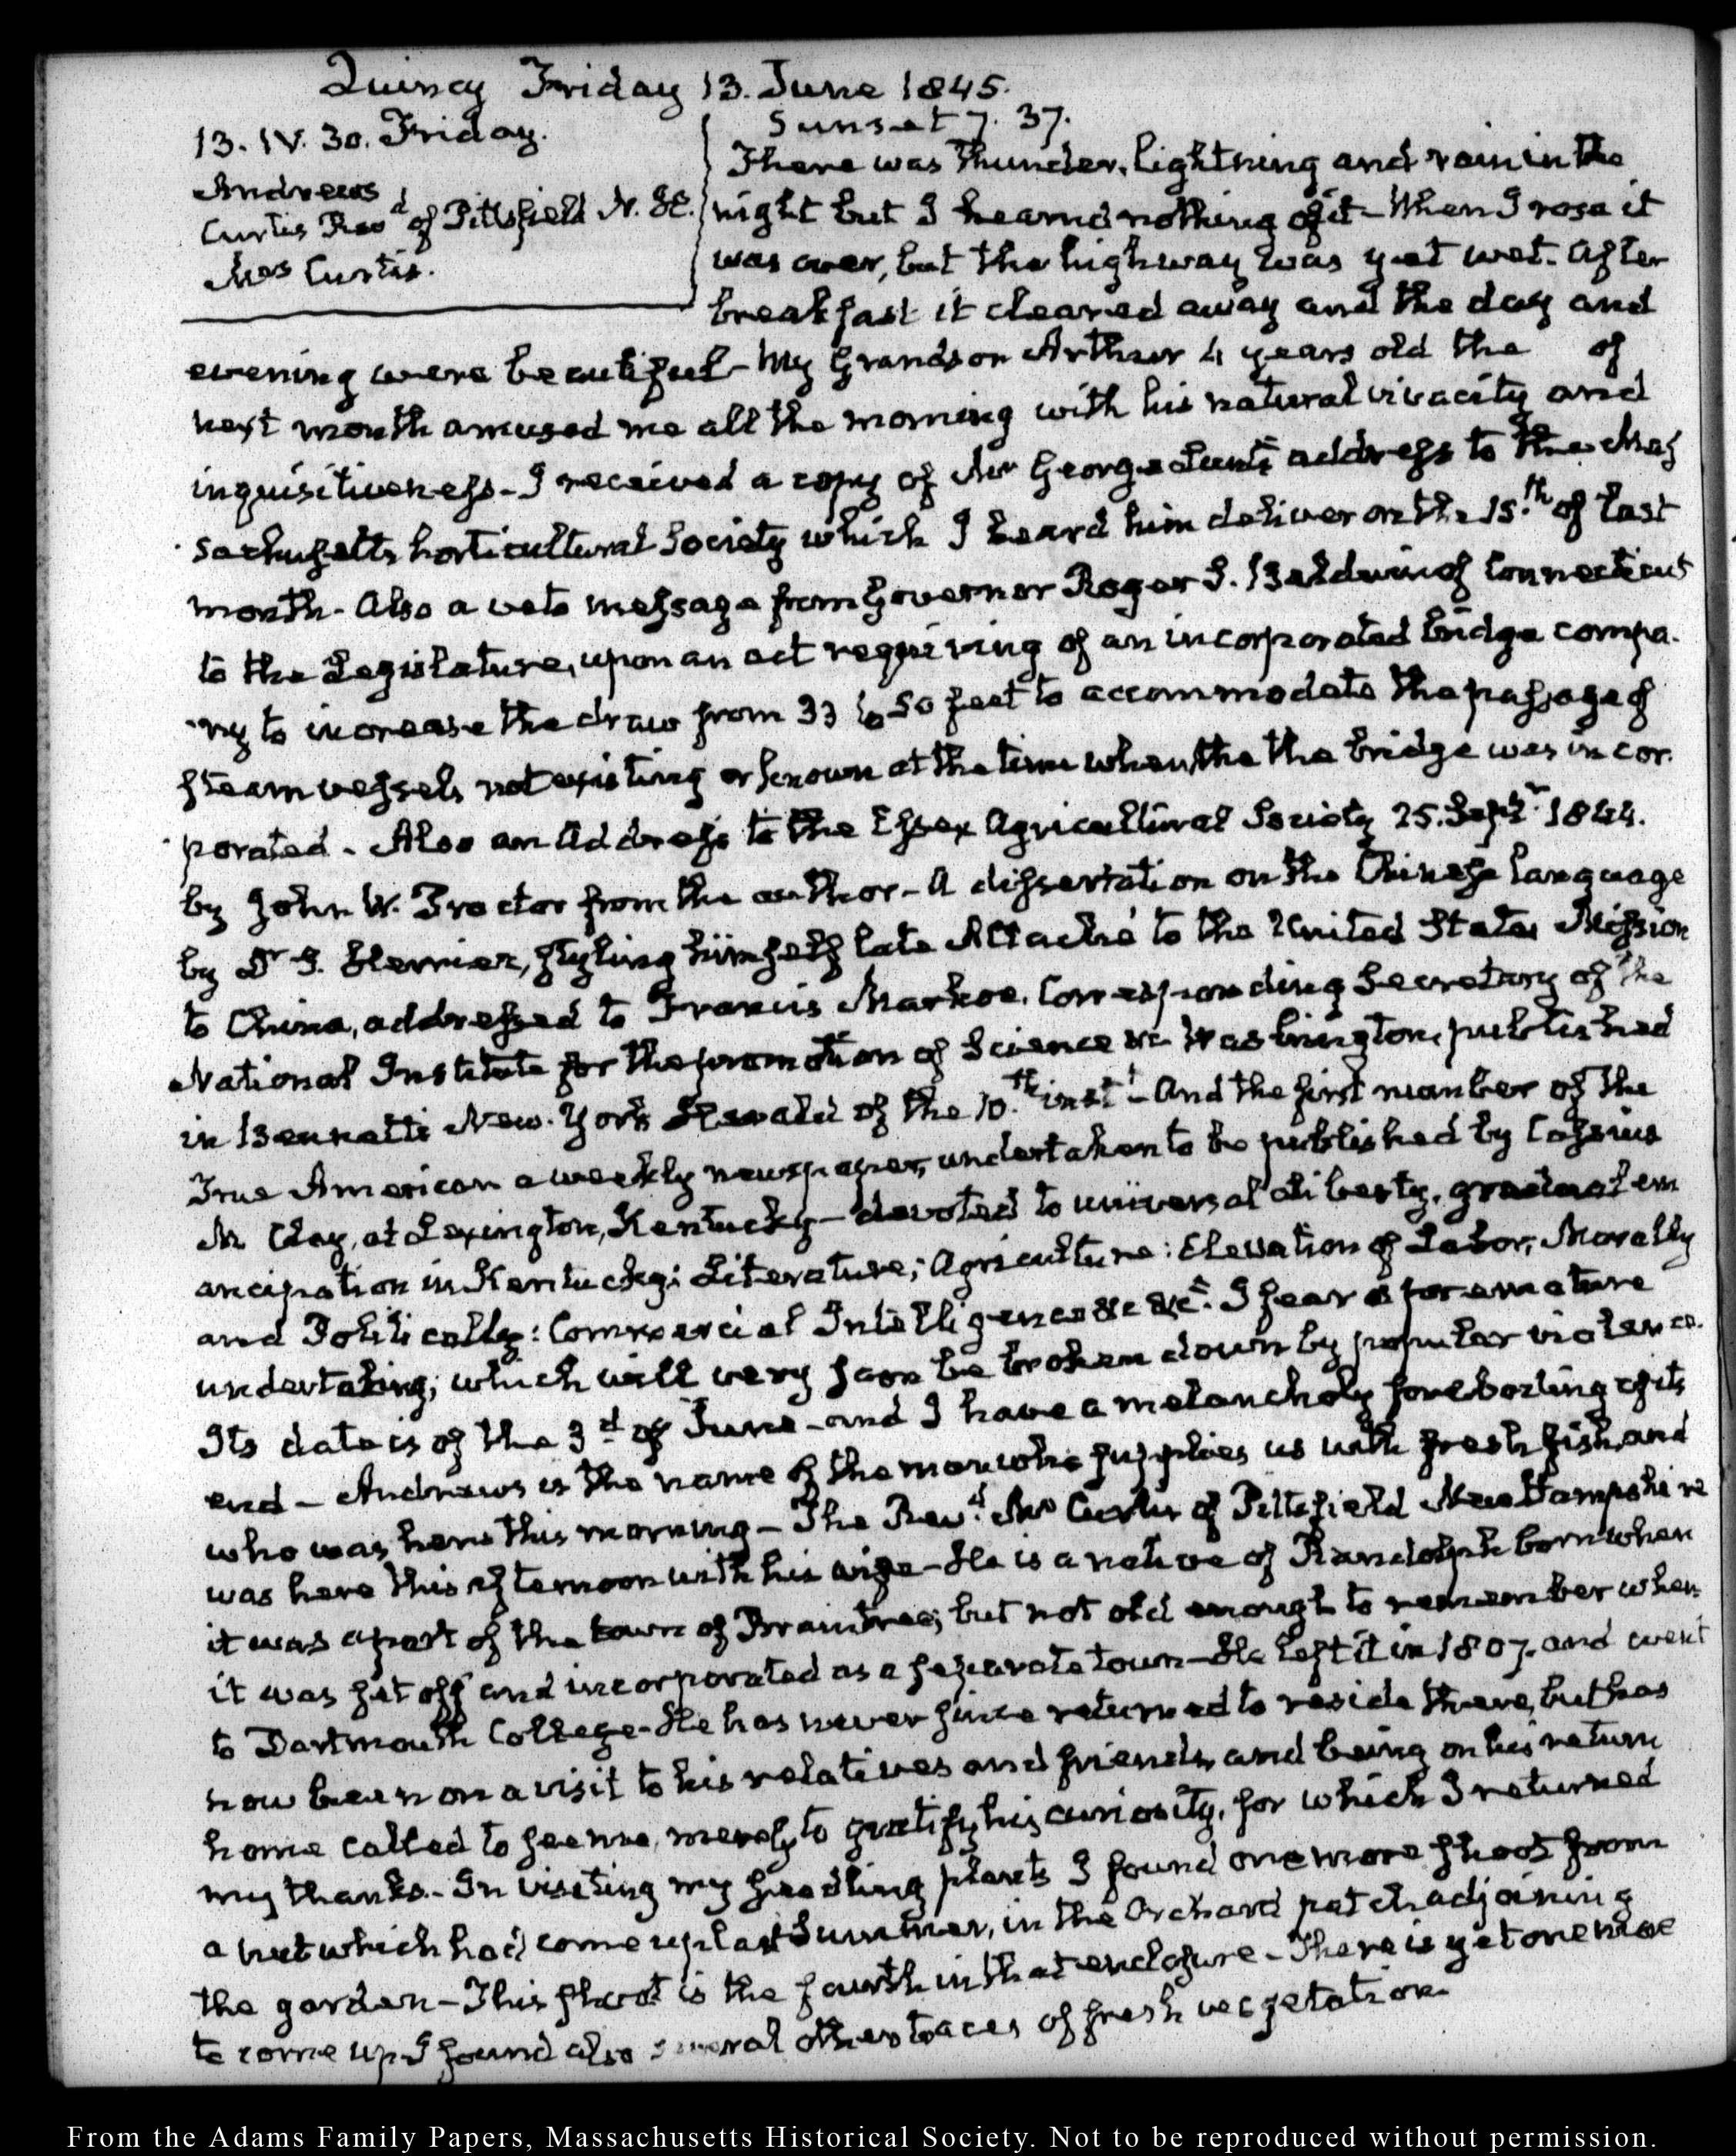 Quincy Friday 13. June 1845.
13. IV. 30. Friday.
Andrews
Curtis Revd of Pittsfield N. H.
Mrs Curtis.
Sunset 7. 37.
There was Thunder, lightning and rain in the
night but I heard nothing of it - When I rose it
was over, but the highway was yet wet. After
breakfast it cleared away and the day and
evening were beautiful - My Grandson Arthur 4 years old the of
next month amused me all the morning with his natural vivacity and
inquisitiveness - I received a copy of Mr George Lunt's address to the Mas
sachusetts horticultural Society which I heard him deliver on the 15.th of last
month - Also a veto message from Governor Roger S. Baldwin of Connecticut
to the Legislature, upon an act requiring of an incorporated bridge compa-
ny to increase the draw from 33 to 50 feet to accommodate the passage of
steam vessels not existing or known at the time when the the bridge was incor-
porated - Also an Address to the Essex Agricultural Society 25. Septr 1844.
by John W. Proctor from the author - A dissertation on the Chinese language
by Dr S. styling himself late Attaché to the United States Mission
to China, addressed to Francis Markoe, Corresponding Secretary of the
National Institute for the promotion of Science at Washington, published
in Bennett's New-York Herald of the 10.th inst - And the first number of the
True American a weekly newspaper, undertaken to be published by Cassius
M Clay, at Lexington, Kentucky - devoted to universal liberty, gradual em
ancipation in Kentucky; Literature; Agriculture: Elevation of Labor, Morally
and Politically: Commercial Intelligence &c &c. I fear a premature
undertaking; which will very soon be broken down by popular violence.
Its date is of the 3d of June - and I have a melancholy foreboding of its
end - Andrews is the name of the man who supplies us with fresh fish, and
who was here this morning - The Revd Mr Curtis of Pittsfield New Hampshire
was here this afternoon with his wife - He is a native of Randolph born when
it was a part of the town of Braintree; but not old enough to remember when
it was set off and incorporated as a separate town - He left it in 1807. and went
to Dartmouth College - He has never since returned to reside there, but has
now been on a visit to his relatives and friends, and being on his return
home called to see me, merely to gratify his curiosity, for which I returned
my thanks - In visiting my seedling plants I found one more shoot from
a nut which had come up last Summer, in the Orchard patch adjoining
the garden - This shoot is the fourth in that enclosure - There is yet one more
to come up I found also several other traces of fresh vegetation.
From the Adams Family Papers, Massachusetts Historical Society. Not to be reproduced without permission.